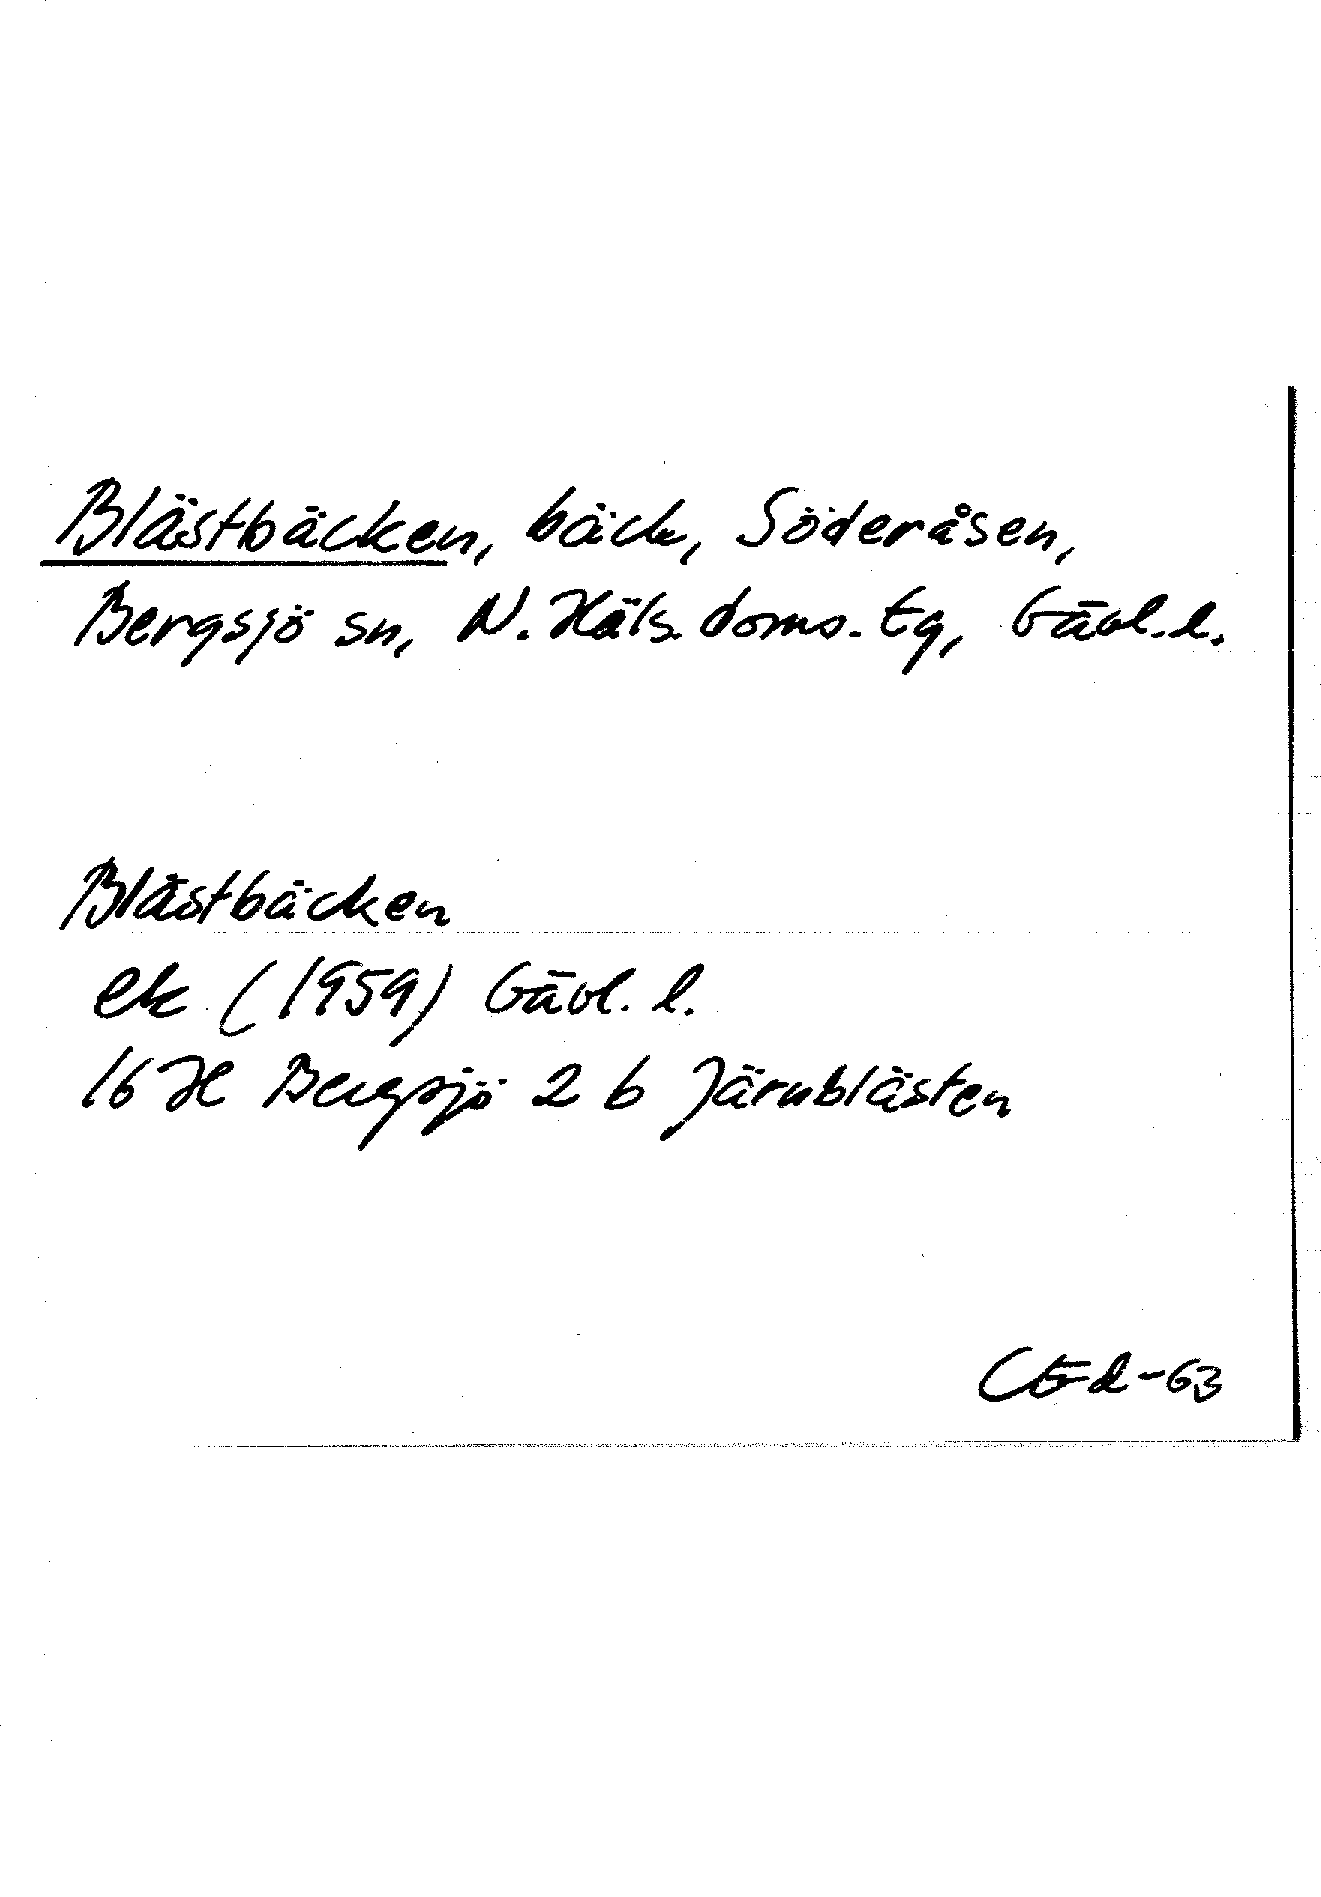 Blästbäcken, bäck, Söderåsen,
Bergsjö sn, N. Häls. doms. tg, Gävl. l.
Blästbäcken
ek (1959) Gävl. l.
16 H Bergsjö 2 b Järnblästen
-63